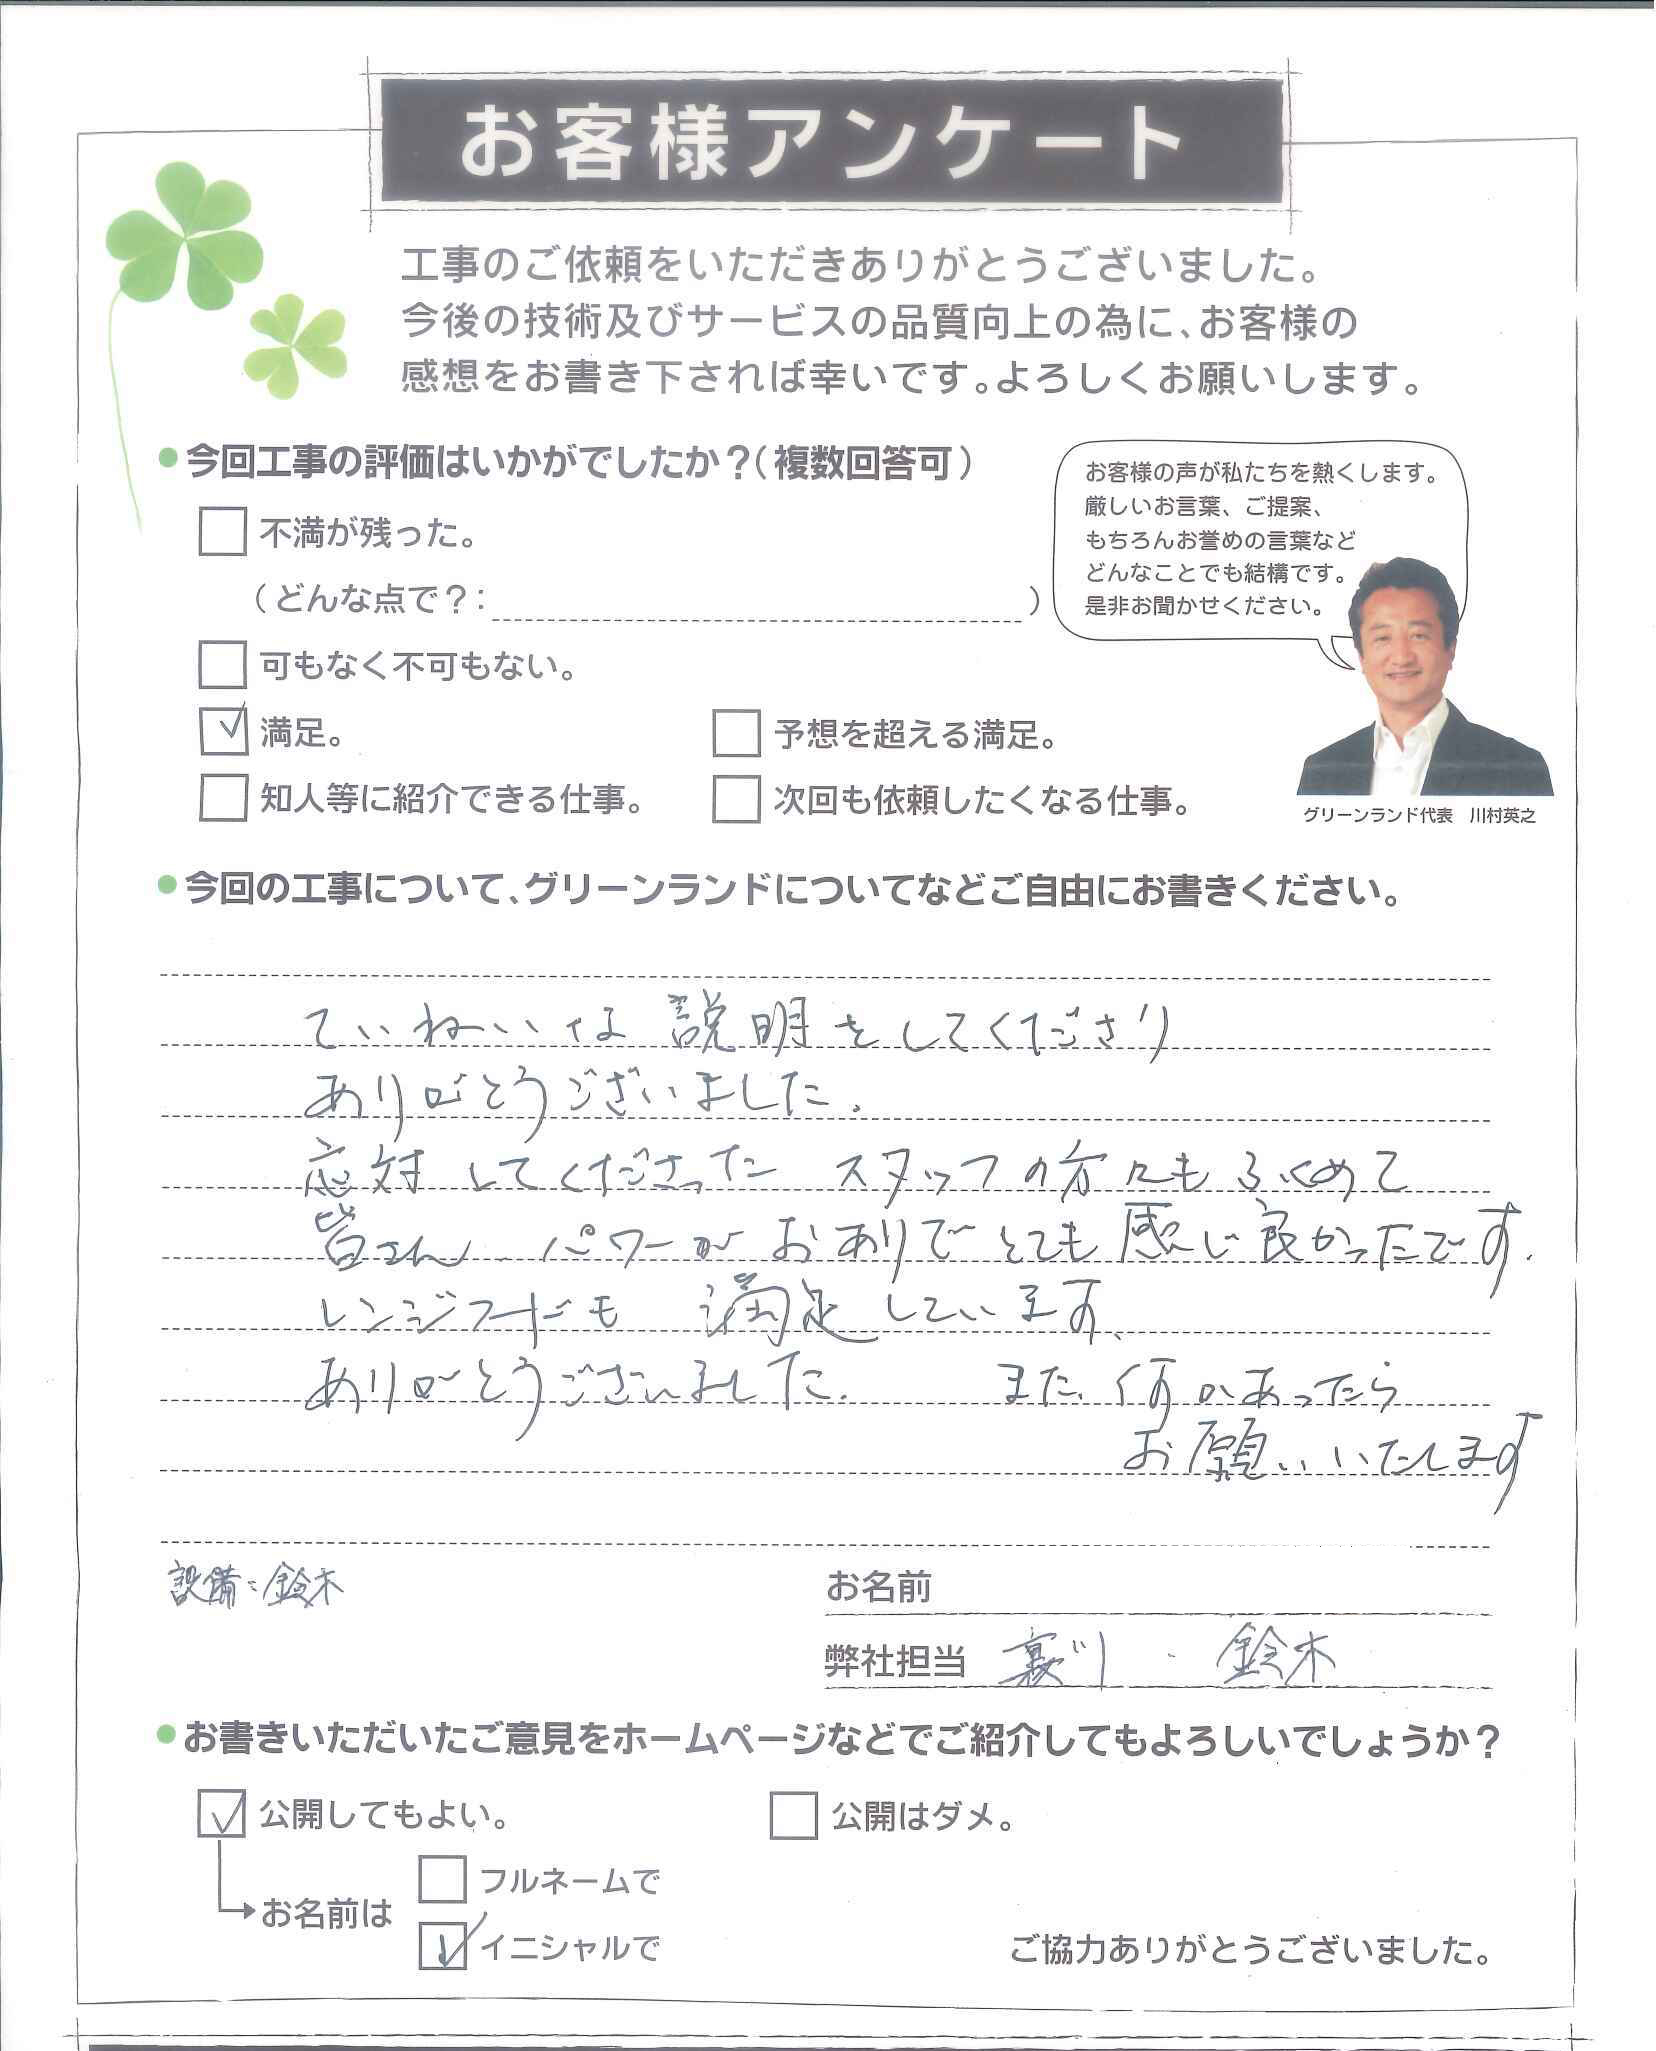 お客様アンケート
工事のご依頼をいただきありがとうございました。
今後の技術及びサービスの品質向上の為に、お客様の
感想をお書き下されば幸いです。よろしくお願いします。
今回工事の評価はいかがでしたか？（複数回答可）
不満が残った。
（どんな点で？：　）
可もなく不可もない。
満足。
予想を超える満足。
知人等に紹介できる仕事。
次回も依頼したくなる仕事。
お客様の声が私たちを熱くします。
厳しいお言葉、ご提案、
もちろんお誉めの言葉など
どんなことでも結構です。
是非お聞かせください。
グリーンランド代表　川村英之
今回の工事について、グリーンランドについてなどご自由にお書きください。
ていねいな説明をしてくださり
ありがとうございました。
応対してくださった スタッフの方々もふくめて
皆さん パワーがおありでとても感じ良かったです。
レンジフードも 満足しています。
ありがとうございました。 また、何かあったら
お願いいたします
設備：鈴木
お名前
弊社担当 ・ 鈴木
お書きいただいたご意見をホームページなどでご紹介してもよろしいでしょうか？
公開してもよい。
公開はダメ。
お名前は
フルネームで
イニシャルで
ご協力ありがとうございました。